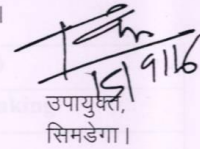 ।
15/9/16
उपायुक्त,
सिमडेगा।